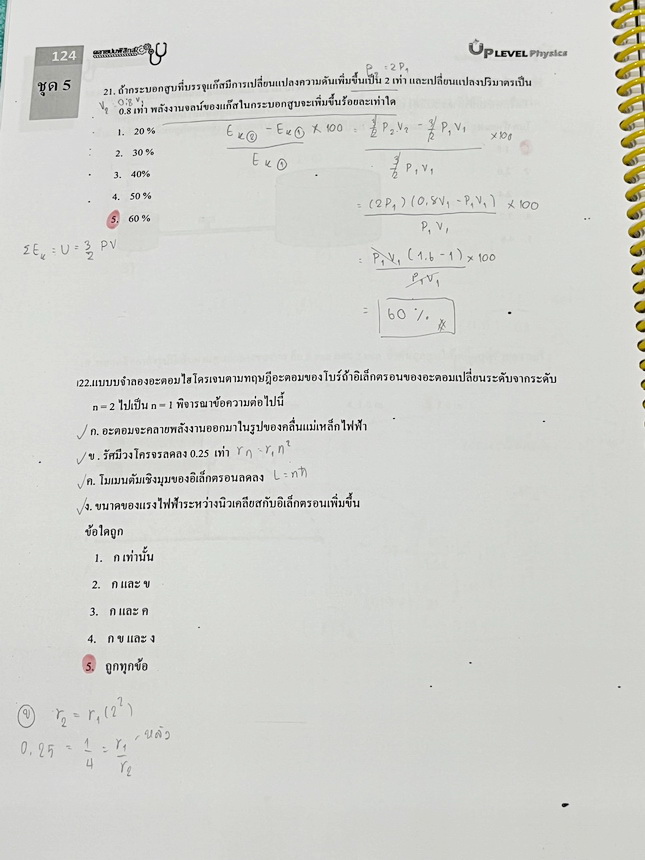 124
UP LEVEL Physics
ชุด 5
P₂ = 2P₁
21. ถ้ากระบอกสูบที่บรรจุแก๊สมีการเปลี่ยนแปลงความดันเพิ่มขึ้นเป็น 2 เท่า และเปลี่ยนแปลงปริมาตรเป็น
V₂ 0.8 V₁
0.8 เท่า พลังงานจลน์ของแก๊สในกระบอกสูบจะเพิ่มขึ้นร้อยละเท่าใด
1. 20 %
2. 30 %
3. 40%
4. 50 %
5. 60 %
E_K② - E_K① × 100 = 3/2 P₂V₂ - 3/2 P₁V₁ × 100
E_K① 3/2 P₁V₁
= (2P₁)(0.8V₁ - P₁V₁) × 100
P₁V₁
ΣE_K = U = 3/2 PV
= P₁V₁ (1.6 - 1) × 100
P₁V₁
= 60 %
22.แบบบจำลองอะตอมไฮโดรเจนตามทฤษฎีอะตอมของโบร์ถ้าอิเล็กตรอนของอะตอมเปลี่ยนระดับจากระดับ
n = 2 ไปเป็น n = 1 พิจารณาข้อความต่อไปนี้
✓ ก. อะตอมจะคลายพลังงานออกมาในรูปของคลื่นแม่เหล็กไฟฟ้า
✓ ข . รัศมีวงโคจรลดลง 0.25 เท่า rn = r₁n²
✓ ค. โมเมนตัมเชิงมุมของอิเล็กตรอนลดลง L = nħ
✓ ง. ขนาดของแรงไฟฟ้าระหว่างนิวเคลียสกับอิเล็กตรอนเพิ่มขึ้น
ข้อใดถูก
1. ก เท่านั้น
2. ก และ ข
3. ก และ ค
4. ก ข และ ง
5. ถูกทุกข้อ
ข r₂ = r₁(2²)
0.25 = 1/4 = r₁/r₂ หลัง